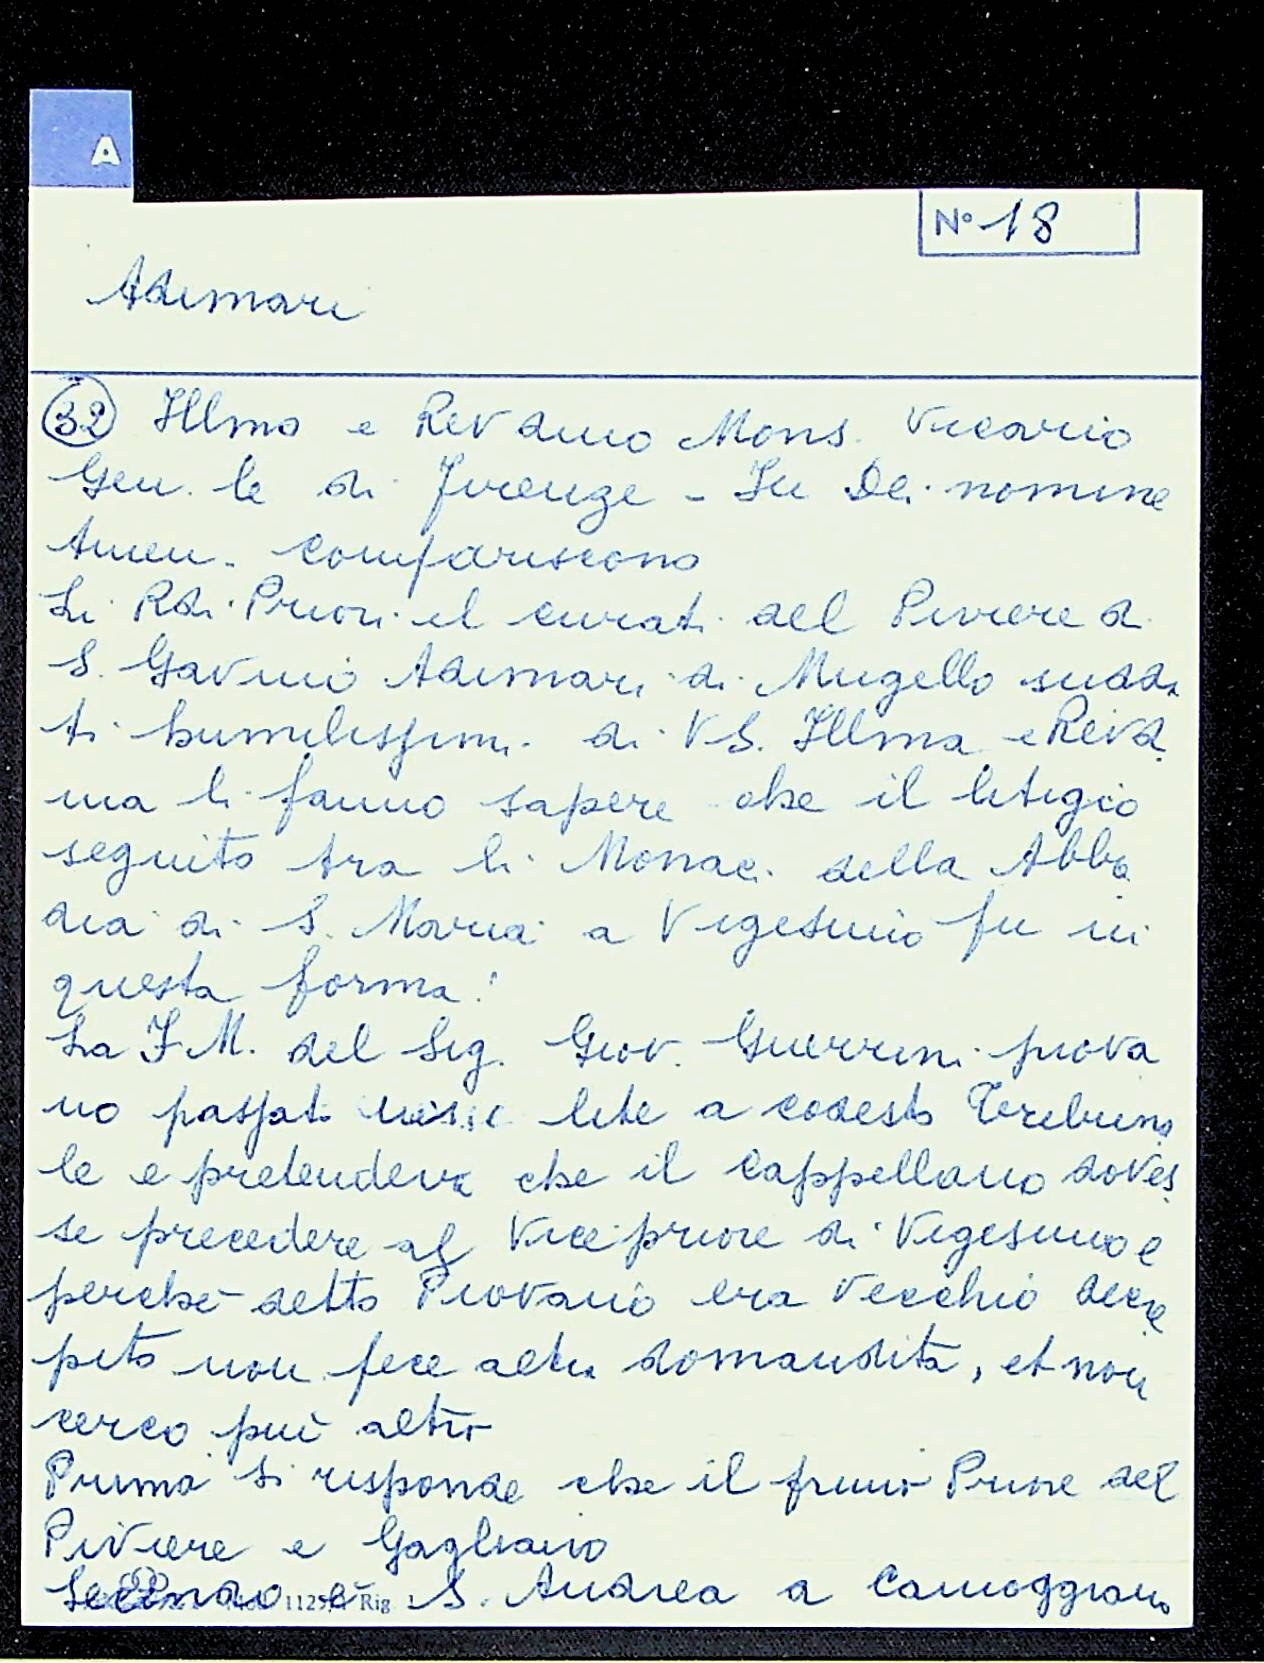 A
N° 18
Adimari
32 Illmo e Revdmo Mons. Vicario
Gen. le di Firenze - In Dei nomine
Amen. compariscono
Li Rdi Priori el curati del Piviere di
S. Gavino Adimari di Mugello suddi
ti humilissimi di VS. Illma e Revd
ma li fanno sapere che il litigio
seguito tra li Monaci della Abba
dia di S. Maria a Vigesimo fu in
questa forma:
La F.M. del Sig. Giov. Guerrini piova
no passati lite a codesto Tribuna
le e pretendeva che il cappellano doves
se precedere al Vice priore di Vigesimo e
perché detto Piovano era vecchio decre
pito non fece altra domandita, et non
cerco più altro
Prima si risponde che il primo Priore del
Piviere e Gagliano
Secondo è S. Andrea a Camoggiano
Rig